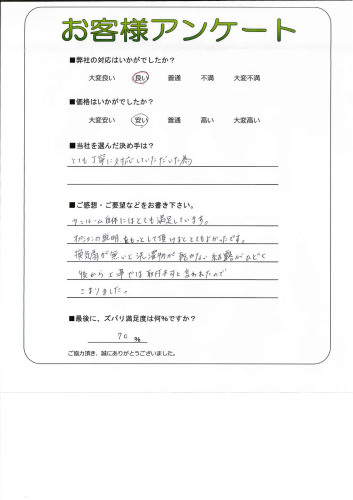 お客様アンケート
■弊社の対応はいかがでしたか?
大変良い 良い 普通 不満 大変不満
■価格はいかがでしたか?
大変安い 安い 普通 高い 大変高い
■当社を選んだ決め手は?
とても丁寧に対応していただいた為
■ご感想・ご要望などをお書き下さい。
サンルーム自体にはとても満足しています。
オプションの説明をもっとして頂けるととてもよかったです。
換気扇が無いと洗濯物が乾かない、結露がひどく
後から工事では取付不可と言われたので
こまりました。
■最後に、ズバリ満足度は何%ですか?
70 %
ご協力頂き、誠にありがとうございました。